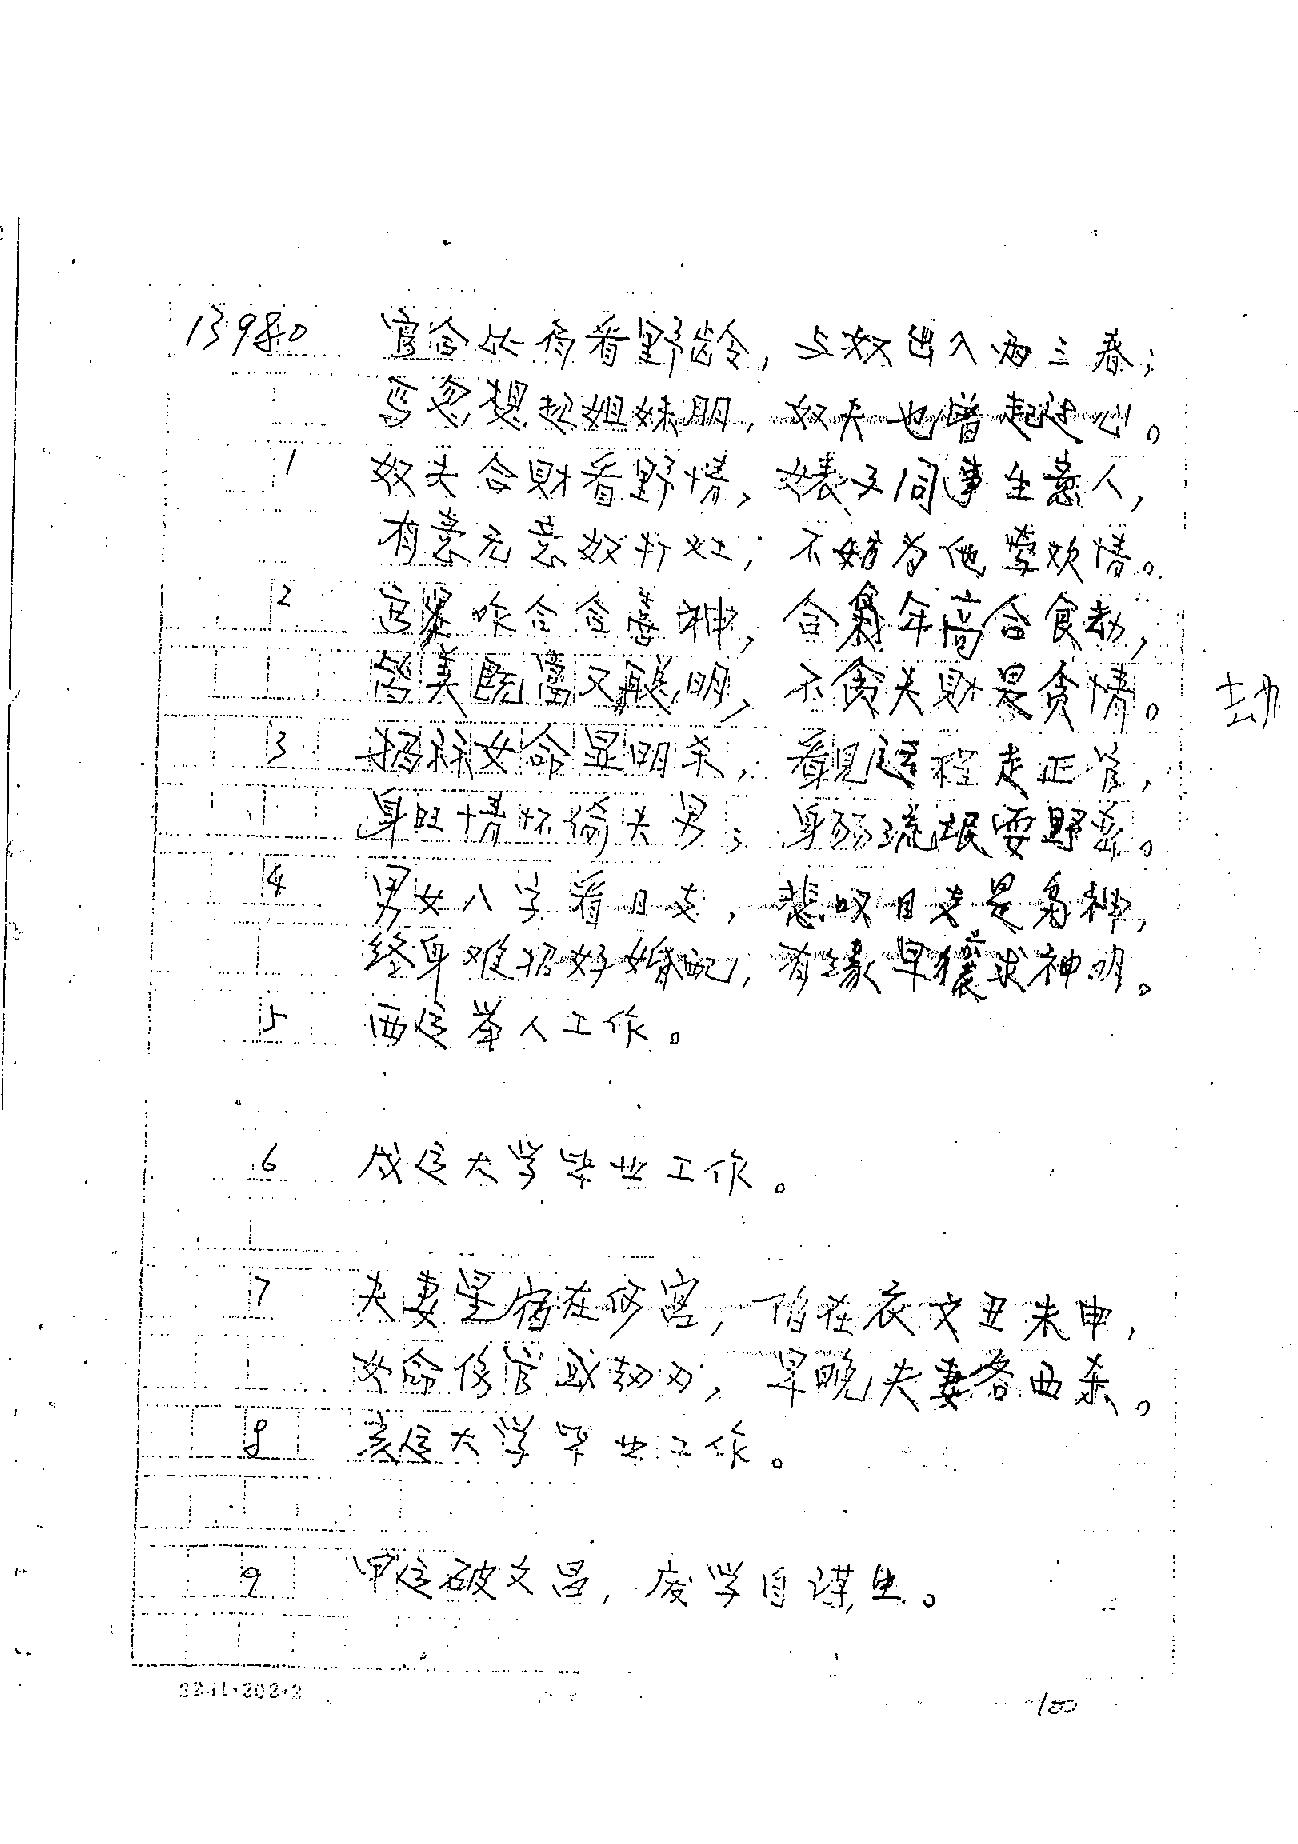 13980 官合比肩看野龄，与奴出入两三春；
忽想起姐妹朋，奴夫也曾起过心。
1 奴夫合财看野情，婊子同事生意人，
有意无意奴折红；不妨为他牵欢情。
2 官星咋合食善神，合枭年高合食劫，
皆美既富又聪明，不贪夫财是贪情。
劫
3 女命显明杀，看见运程走正管，
身旺情怀偷夫男；身弱流垠要野
4 男女八字看日支，悲叹日支是枭神，
终身难招好婚配，有缘早禳求神明。
5 西运举人工作。
6 戌运大学毕业工作。
7 夫妻星宿在何宫，陷在衣文丑未申，
女命伤官或劫刃，早晚夫妻各西东。
8 亥运大学毕业工作。
9 甲运破文昌，废学自谋生。
2241·202·2
100